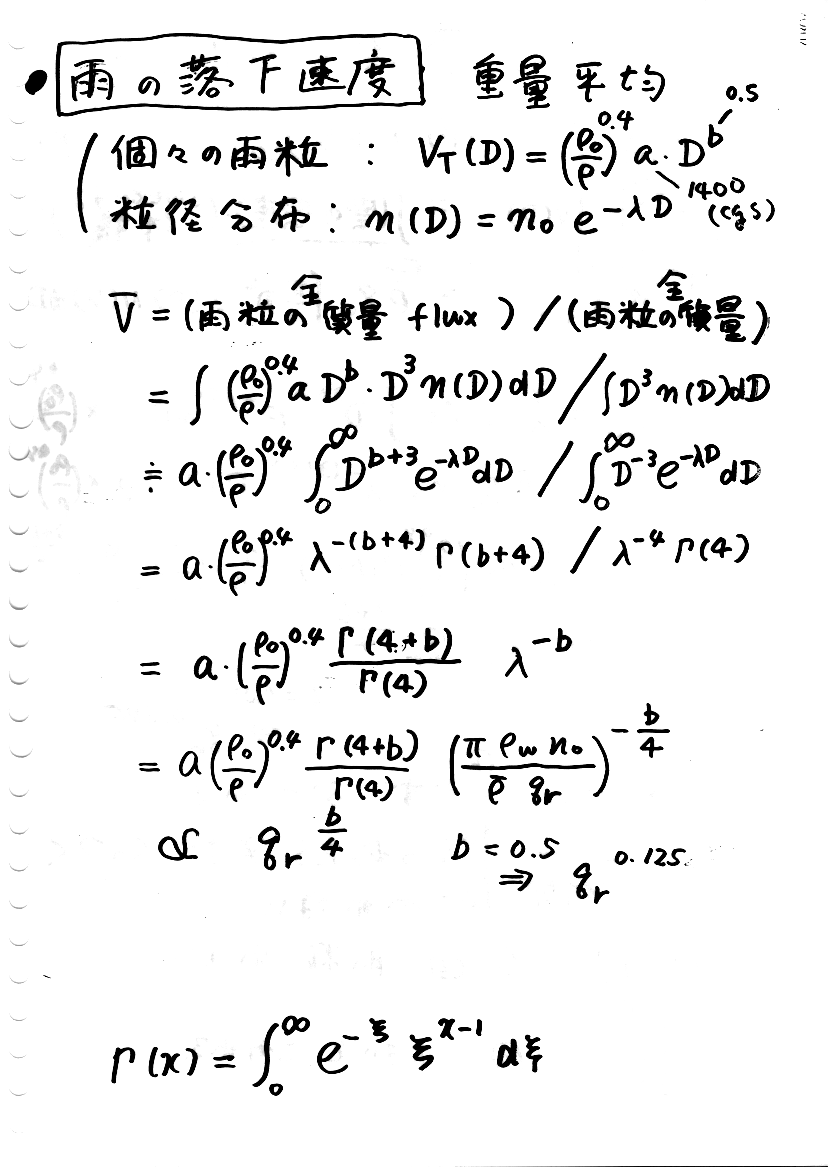 • 雨の落下速度 重量平均
個々の雨粒 : V_T(D) = (ρ₀/ρ)^0.4 a・D^b 0.5
1400
粒径分布 : n(D) = n₀ e^{-λD} (cgs)
V̄ = (雨粒の全質量 flux) / (雨粒の全質量)
= ∫ (ρ₀/ρ)^0.4 a D^b・D^3 n(D) dD / ∫ D^3 n(D) dD
≑ a・(ρ₀/ρ)^0.4 ∫_0^∞ D^{b+3} e^{-λD} dD / ∫_0^∞ D^{-3} e^{-λD} dD
= a・(ρ₀/ρ)^0.4 λ^{-(b+4)} Γ(b+4) / λ^{-4} Γ(4)
= a・(ρ₀/ρ)^0.4 Γ(4+b)/Γ(4) λ^{-b}
= a (ρ₀/ρ)^0.4 Γ(4+b)/Γ(4) (π ρ_w n₀ / ρ̄ q_r)^{-b/4}
∝ q_r^{b/4} b = 0.5
⇒ q_r^{0.125}
Γ(x) = ∫_0^∞ e^{-ξ} ξ^{x-1} dξ